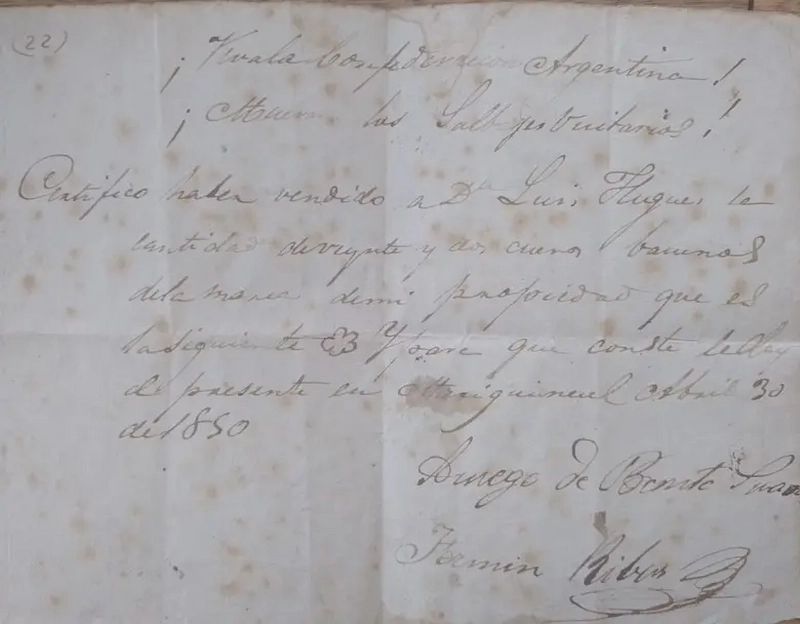 (22)
¡Viva la Confederacion Argentina!
¡Mueran los Salbajes Unitarios!
Certifico haber vendido a Dn Luis Hugues la
cantidad de veynte y dos cueros bacunos
de la marca de mi propiedad que es
la siguiente Y para que conste le doy
el presente en Abril 30
de 1850
A ruego de Benito Suares
Fermin Ribas